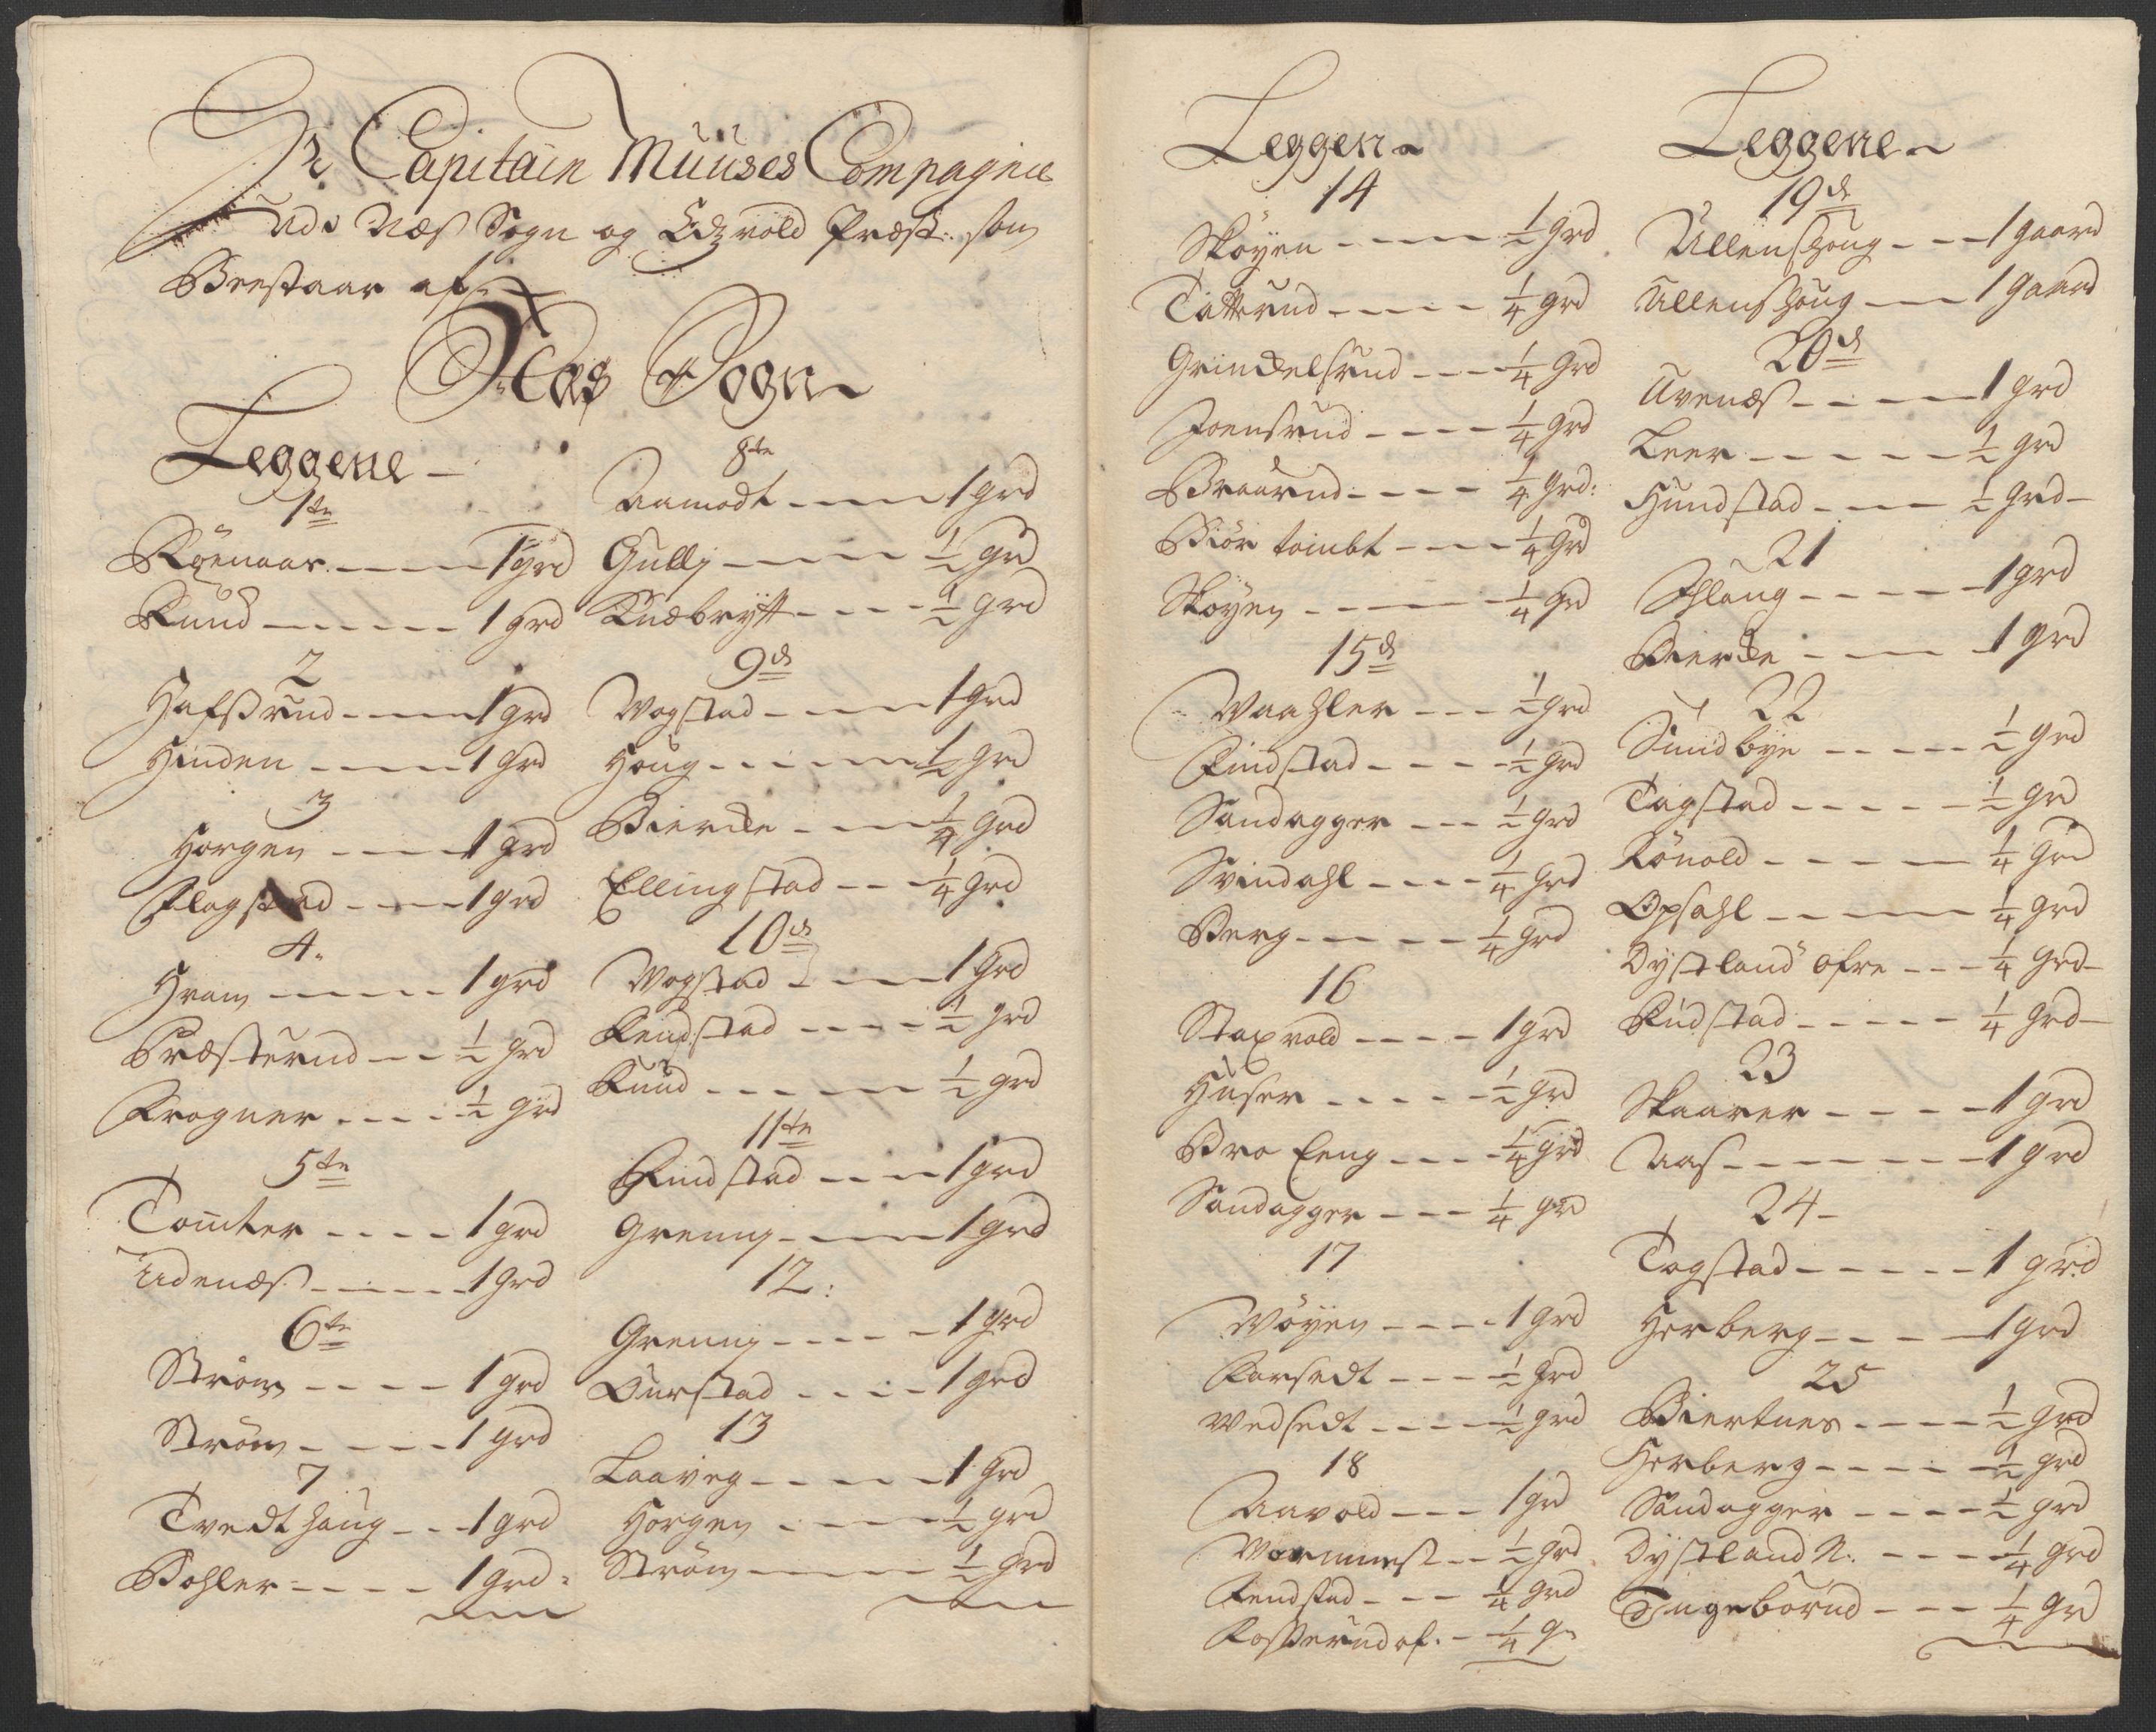 Hr Capitain Muuses Compagnie
Udi Næs Sogn og Edzvold Præst: som
Beestaar af
Næs Sogn
Leggene
1te
Röenaas 1 grd
Ruud 1 grd
2
Hafsrud 1 grd
Hinden 1 grd
3
Horgen 1 grd
Flogstad 1 grd
4.
Hvam 1 grd
Præsterud ½ grd
Frogner ½ grd
5te
Tomter 1 grd
Udenæs 1 grd
6te
Ström 1 grd
Ström 1 grd
7
Tvedt haug 1 grd
Bohler 1 grd
8te
Aamodt 1 grd
Gullj ½ grd
Knæbrÿtt ½ grd
9de
Wogstad 1 grd
Houg ½ grd
Bierche ¼ grd
Ellingstad ¼ grd
10de
Wogstad 1 grd
Rendstad ½ grd
Ruud ½ grd
11te
Findstad 1 grd
Grennj 1 grd
12:
Grennj 1 grd
Ourstad 1 grd
13
Laaveg 1 grd
Horgen ½ grd
Ström ½ grd
Leggen
14
Skoÿen ½ grd
Tatterud ¼ grd
Grindelsrud ¼ grd
Joensrud ¼ grd
Braarud ¼ grd:
Biör tombt ¼ grd
Skoÿen ¼ grd
15de
Waahler ½ grd
Findstad ½ grd
Sandagger ½ grd
Svindahl ¼ grd
Berg ¼ grd
16
Staxvold 1 grd
Huser ½ grd
Bro Eeng ¼ grd
Sandagger ¼ grd
17
Wöÿen 1 grd
Korsedt ½ grd
Wedsedt ½ grd
18
Aavold 1 grd
Wormnes ½ grd
Rendstad ¼ grd
Kosserud of. ¼ g
Leggene
19de
Ullenshoug 1 gaard
Ullenshoug 1 gaard
20de
Uvenæs 1 grd
Leer ½ grd
Hundstad ½ grd
21
Ihlaug 1 grd
Bierche 1 grd
22
Sundbÿe ½ grd
Togstad ½ grd
Rönold ¼ grd
Opsahl ¼ grd
Dystland öfre ¼ grd
Rudstad ¼ grd
23
Skaarer 1 grd
Aas 1 grd
24
Togstad 1 grd
Herberg 1 grd
25
Biertnes ½ grd
Herberg ½ grd
Sandagger ½ grd
Dystland N: ¼ grd
Ingebörud ¼ grd